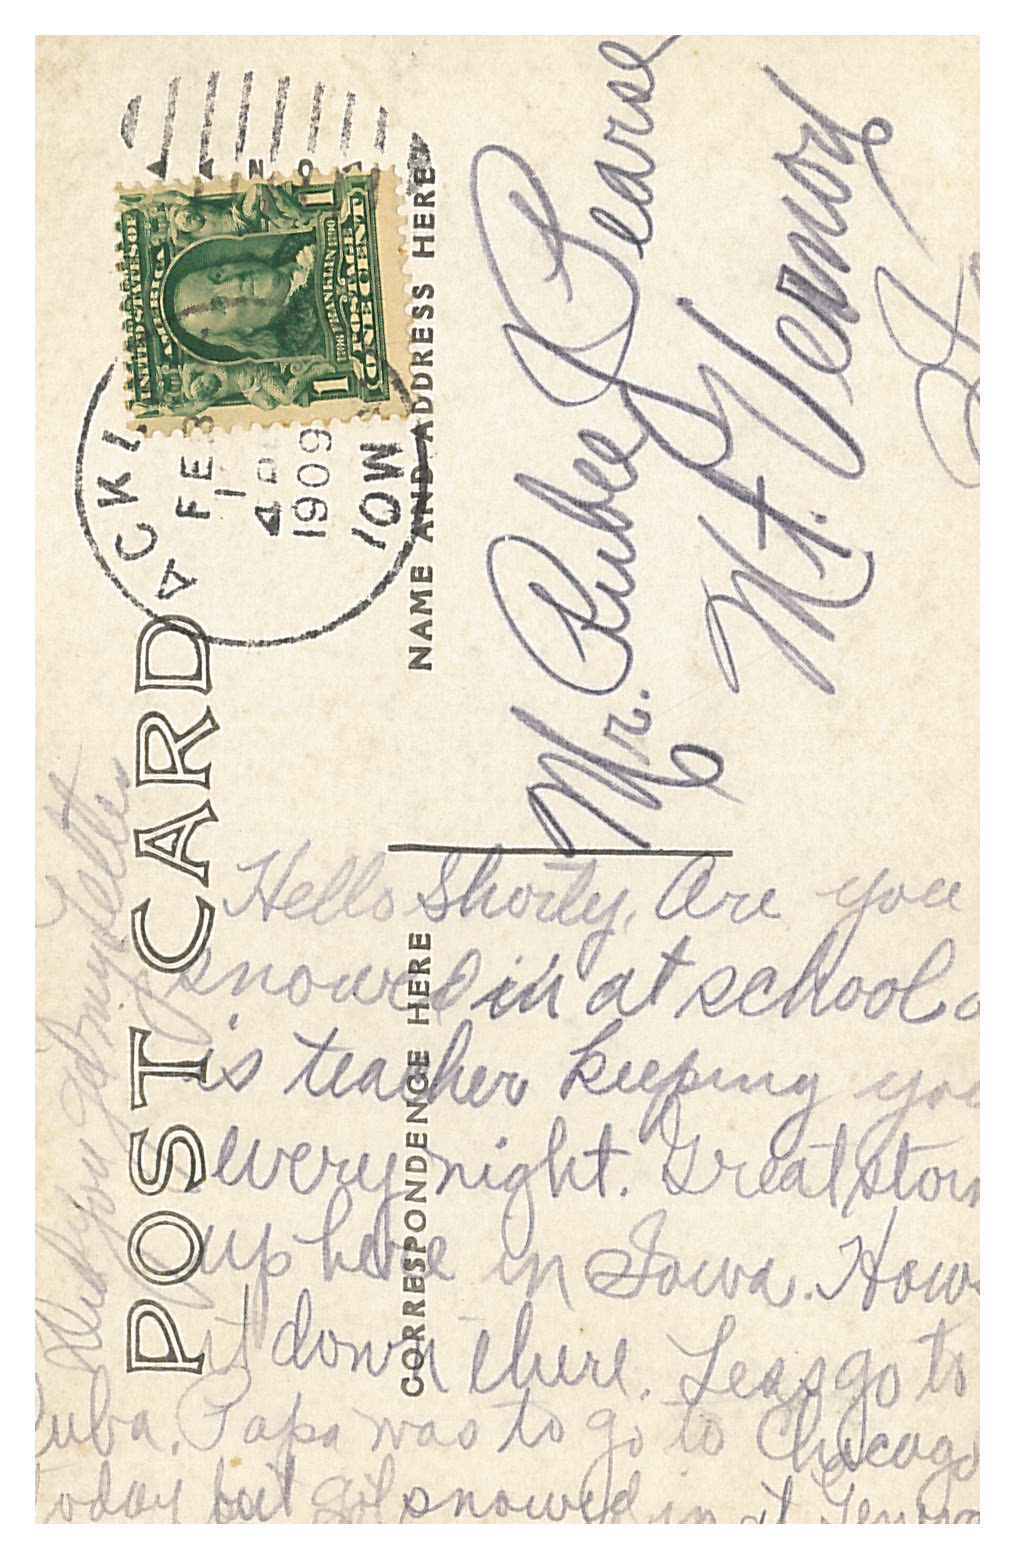 POST CARD
CORRESPONDENCE HERE
NAME AND ADDRESS HERE
ACKL
FEB
1909
IOW
UNITED STATES OF
AMERICA
1706 FRANKLIN 1790
POSTAGE
1 ONE CENT 1
Mr. Rubee Pearse
Mt. Vernon
Hello Shorty, Are you
snowed in at school
is teacher keeping you
every night. Great storm
up here in Iowa. Hows
it down there. Leasgo to
Cuba. Papa was to go to Chicago
today but got snowed in at
Did you get my letter